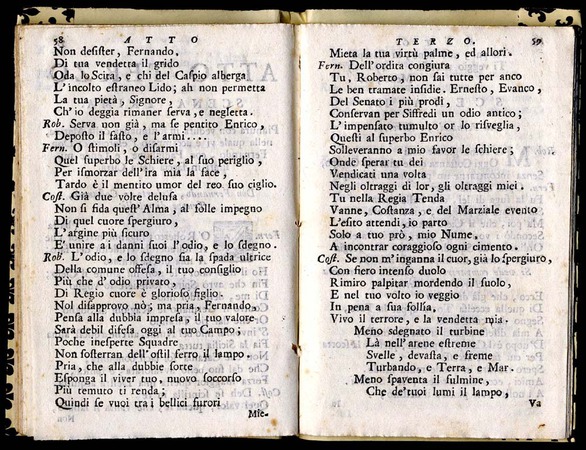 58 ATTO
Non desister, Fernando.
Di tua vendetta il grido
Oda lo Scita, e chi del Caspio alberga
L'incolto estraneo Lido; ah non permetta
La tua pietà, Signore,
Ch'io deggia rimaner serva, e negletta.
Rob. Serva non già, ma se pentito Enrico,
Deposto il fasto, e l'armi....
Fern. O stimoli, o disarmi
Quel superbo le Schiere, al suo periglio,
Per ismorzar dell'ira mia la face,
Tardo è il mentito umor del reo suo ciglio.
Cost. Già due volte delusa
Non si fida quest'Alma, al folle impegno
Di quel cuore spergiuro,
L'argine più sicuro
E' unire ai danni suoi l'odio, e lo sdegno.
Rob. L'odio, e lo sdegno sia la spada ultrice
Della comune offesa, il tuo consiglio
Più che d'odio privato,
Di Regio cuore è glorioso figlio.
Nol disapprovo nò; ma pria, Fernando,
Pensa alla dubbia impresa, il tuo valore
Sarà debil difesa oggi al tuo Campo;
Poche inesperte Squadre
Non sosterran dell'ostil ferro il lampo.
Pria, che alla dubbie sorte
Esponga il viver tuo, nuovo soccorso
Più temuto ti renda;
Quindi se vuoi tra i bellici furori
Mie-
TERZO. 59
Mieta la tua virtù palme, ed allori.
Fern. Dell'ordita congiura
Tu, Roberto, non sai tutte per anco
Le ben tramate insidie. Ernesto, Evanco,
Del Senato i più prodi,
Conservan per Siffredi un odio antico;
L'impensato tumulto or lo risveglia,
Questi al superbo Enrico
Solleveranno a mio favor le schiere;
Onde sperar tu dei
Vendicati una volta
Negli oltraggi di lor, gli oltraggi miei.
Tu nella Regia Tenda
Vanne, Costanza, e del Marziale evento
L'esito attendi, io parto
Solo a tuo prò, mio Nume,
A incontrar coraggioso ogni cimento.
Cost. Se non m'inganna il cuor, già lo spergiuro,
Con fiero intenso duolo
Rimiro palpitar mordendo il suolo,
E nel tuo volto io veggio
In pena a sua follia,
Vivo il terrore, e la vendetta mia.
Meno sdegnato il turbine
Là nell'arene estreme
Svelle, devasta, e freme
Turbando, e Terra, e Mar.
Meno spaventa il fulmine,
Che de'tuoi lumi il lampo,
Va